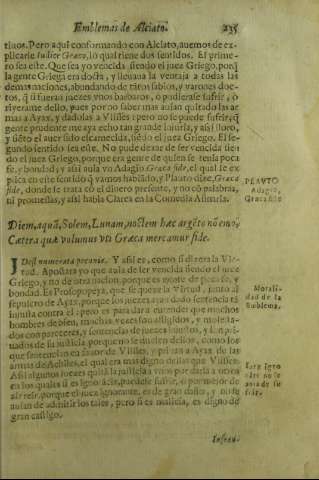 Emblemas de Alciato. 235
tiuos. Pero aqui conformando con Alciato, auemos de explicarle Iudice Græco, lo qual tiene dos sentidos. El primero sea este. Que sea yo vencida siendo el juez Griego, porq̃
la gente Griega era docta, y lleuaua la ventaja a todas las
demas naciones, abundando de tãtos sabios, y varones doctos,
q̃ si fueran juezes vnos barbaros, o pudierase sufrir, o
riyerame pues por no saber mas auian quitado las armas
a Ayax, y dadolas a Vlisses: pero no se puede sufrir, q̃
gente prudente me aya echo tan grande injuria, y assi lloro,
siendo el juez Griego. El segundo
sentido sea este. No pude dexar de ser vencida siendo
el juez Griego, porque era gente de quien se tenia poca
fe, y bondad, y assi vn Adagio Græca fide, el qual se explica
en este sentido q̃ vamos hablando, y Plauto dize, Græca
fide, donde se trata cõ el dinero presente, y no cõ palabras,
ni promessas, y assi habla Clareta en la Comedia Asinaria.
PLAVTO
Adagio,
Græca fide
Diem, aquã, Solem, Lunam, noctem hæc argẽto nõ emo,
Cætera quæ volumus vti Græca mercamur fide.
Id est numerata pecunia. Y assi es, como si dixera la Virtud.
Apostara yo que auia de ser vencida siendo el juez
Griego, y no de otra nacion, porque es gente de poca fe, y
bondad. Es Prosopopeya, que se quexa la Virtud, junto al
sepulcro de Ayax, porque los juezes ayan dado sentencia tã
injusta contra el: pero es para dar a entender que muchos
hombres de bien, muchas vezes son afligidos, y molestados
con pareceres, y sentencias de juezes injustos, y son priuados
de su justicia, porque no se duelen dellos, como los
que sentencian en fauor de Vlisses, y priuan a Ayax de las
armas de Achiles, el qual era mas digno dellas que Vlisses.
Assi algunos juezes quitã la justicia a vnos por darla a otros
en los quales si es ignorãcia, puedese sufrir, o por mejor dezir
reir, porque el juez ignorante, es de gran daño, y no se
auian de admitir los tales, pero si es malicia, es digno de
gran castigo.
Moralidad
de la
Emblema.
Insen-